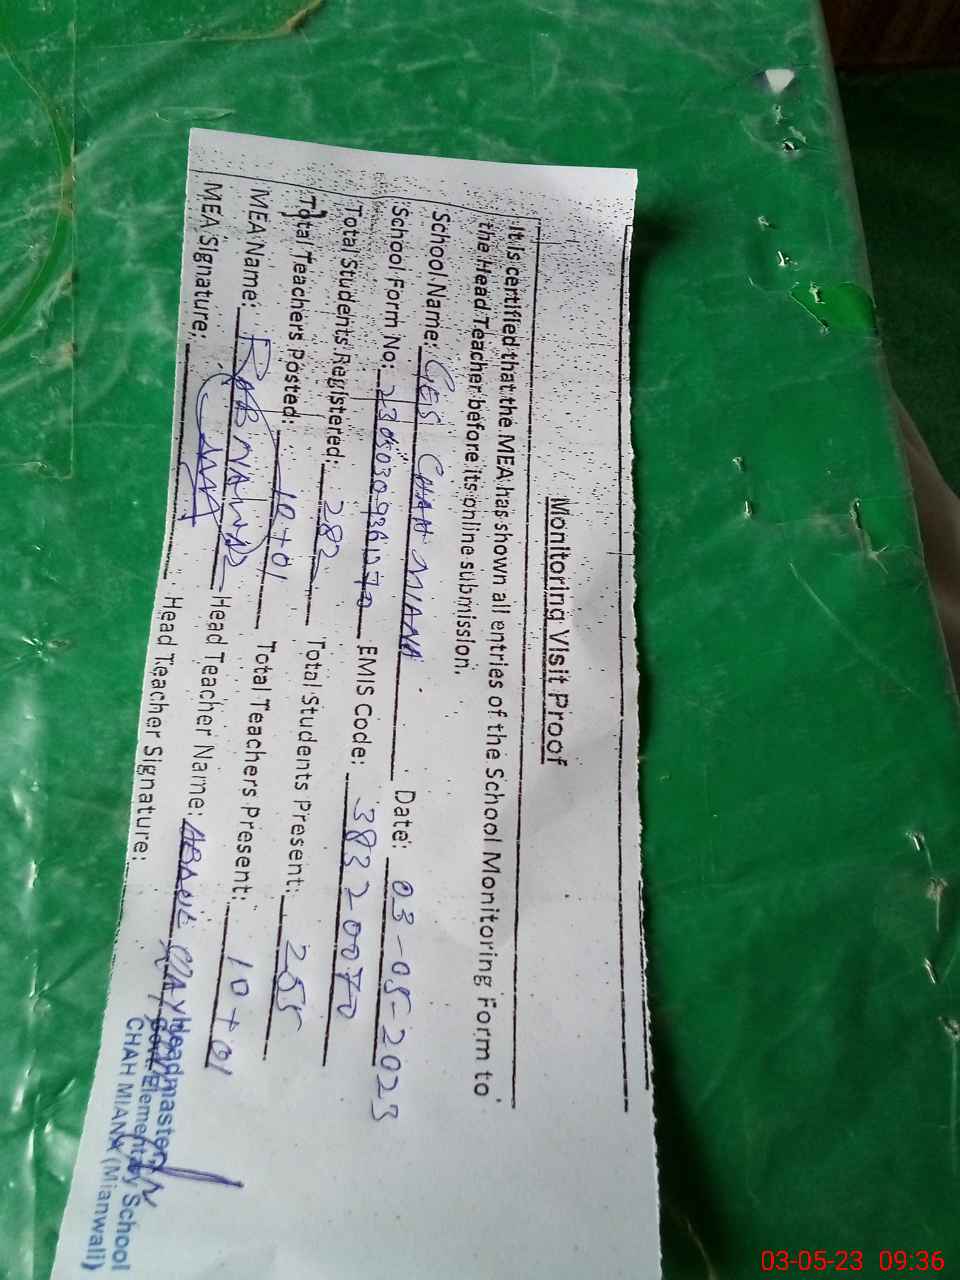 Monitoring Visit Proof
It is certified that the MEA has shown all entries of the School Monitoring Form to
the Head Teacher before its online submission.
School Name: GES CHAH MIANA Date: 03-05-2023
School Form No: 23050309361270 EMIS Code: 38320070
Total Students Registered: 282 Total Students Present: 255
Total Teachers Posted: 10+01 Total Teachers Present: 10+01
MEA Name: RAB NAWAZ Head Teacher Name:
MEA Signature: Head Teacher Signature:
Headmaster
Govt Elementary School
CHAH MIANA (Mianwali)
03-05-23 09:36